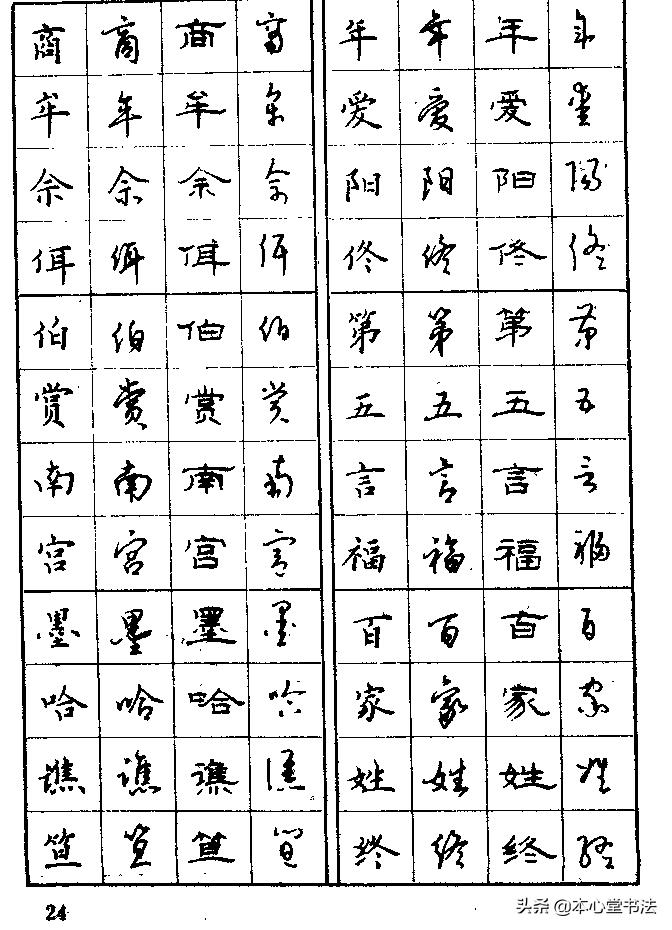 商 商 商 商
牟 牟 牟 牟
佘 佘 佘 佘
佴 佴 佴 佴
伯 伯 伯 伯
赏 赏 赏 赏
南 南 南 南
宫 宫 宫 宫
墨 墨 墨 墨
哈 哈 哈 哈
谯 谯 谯 谯
笪 笪 笪 笪
年 年 年 年
爱 爱 爱 爱
阳 阳 阳 阳
佟 佟 佟 佟
第 第 第 第
五 五 五 五
言 言 言 言
福 福 福 福
百 百 百 百
家 家 家 家
姓 姓 姓 姓
终 终 终 终
24
头条 @本心堂书法